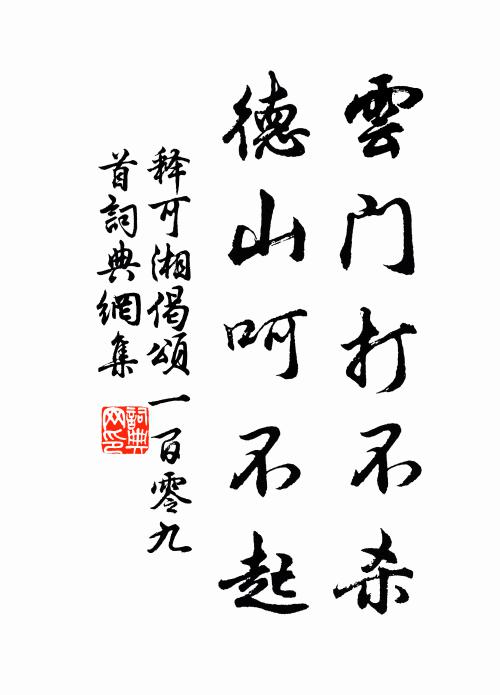 雲门打不杀
德山呵不起
释可湘偈頌一百零九
首詞典網集
詞典
网印